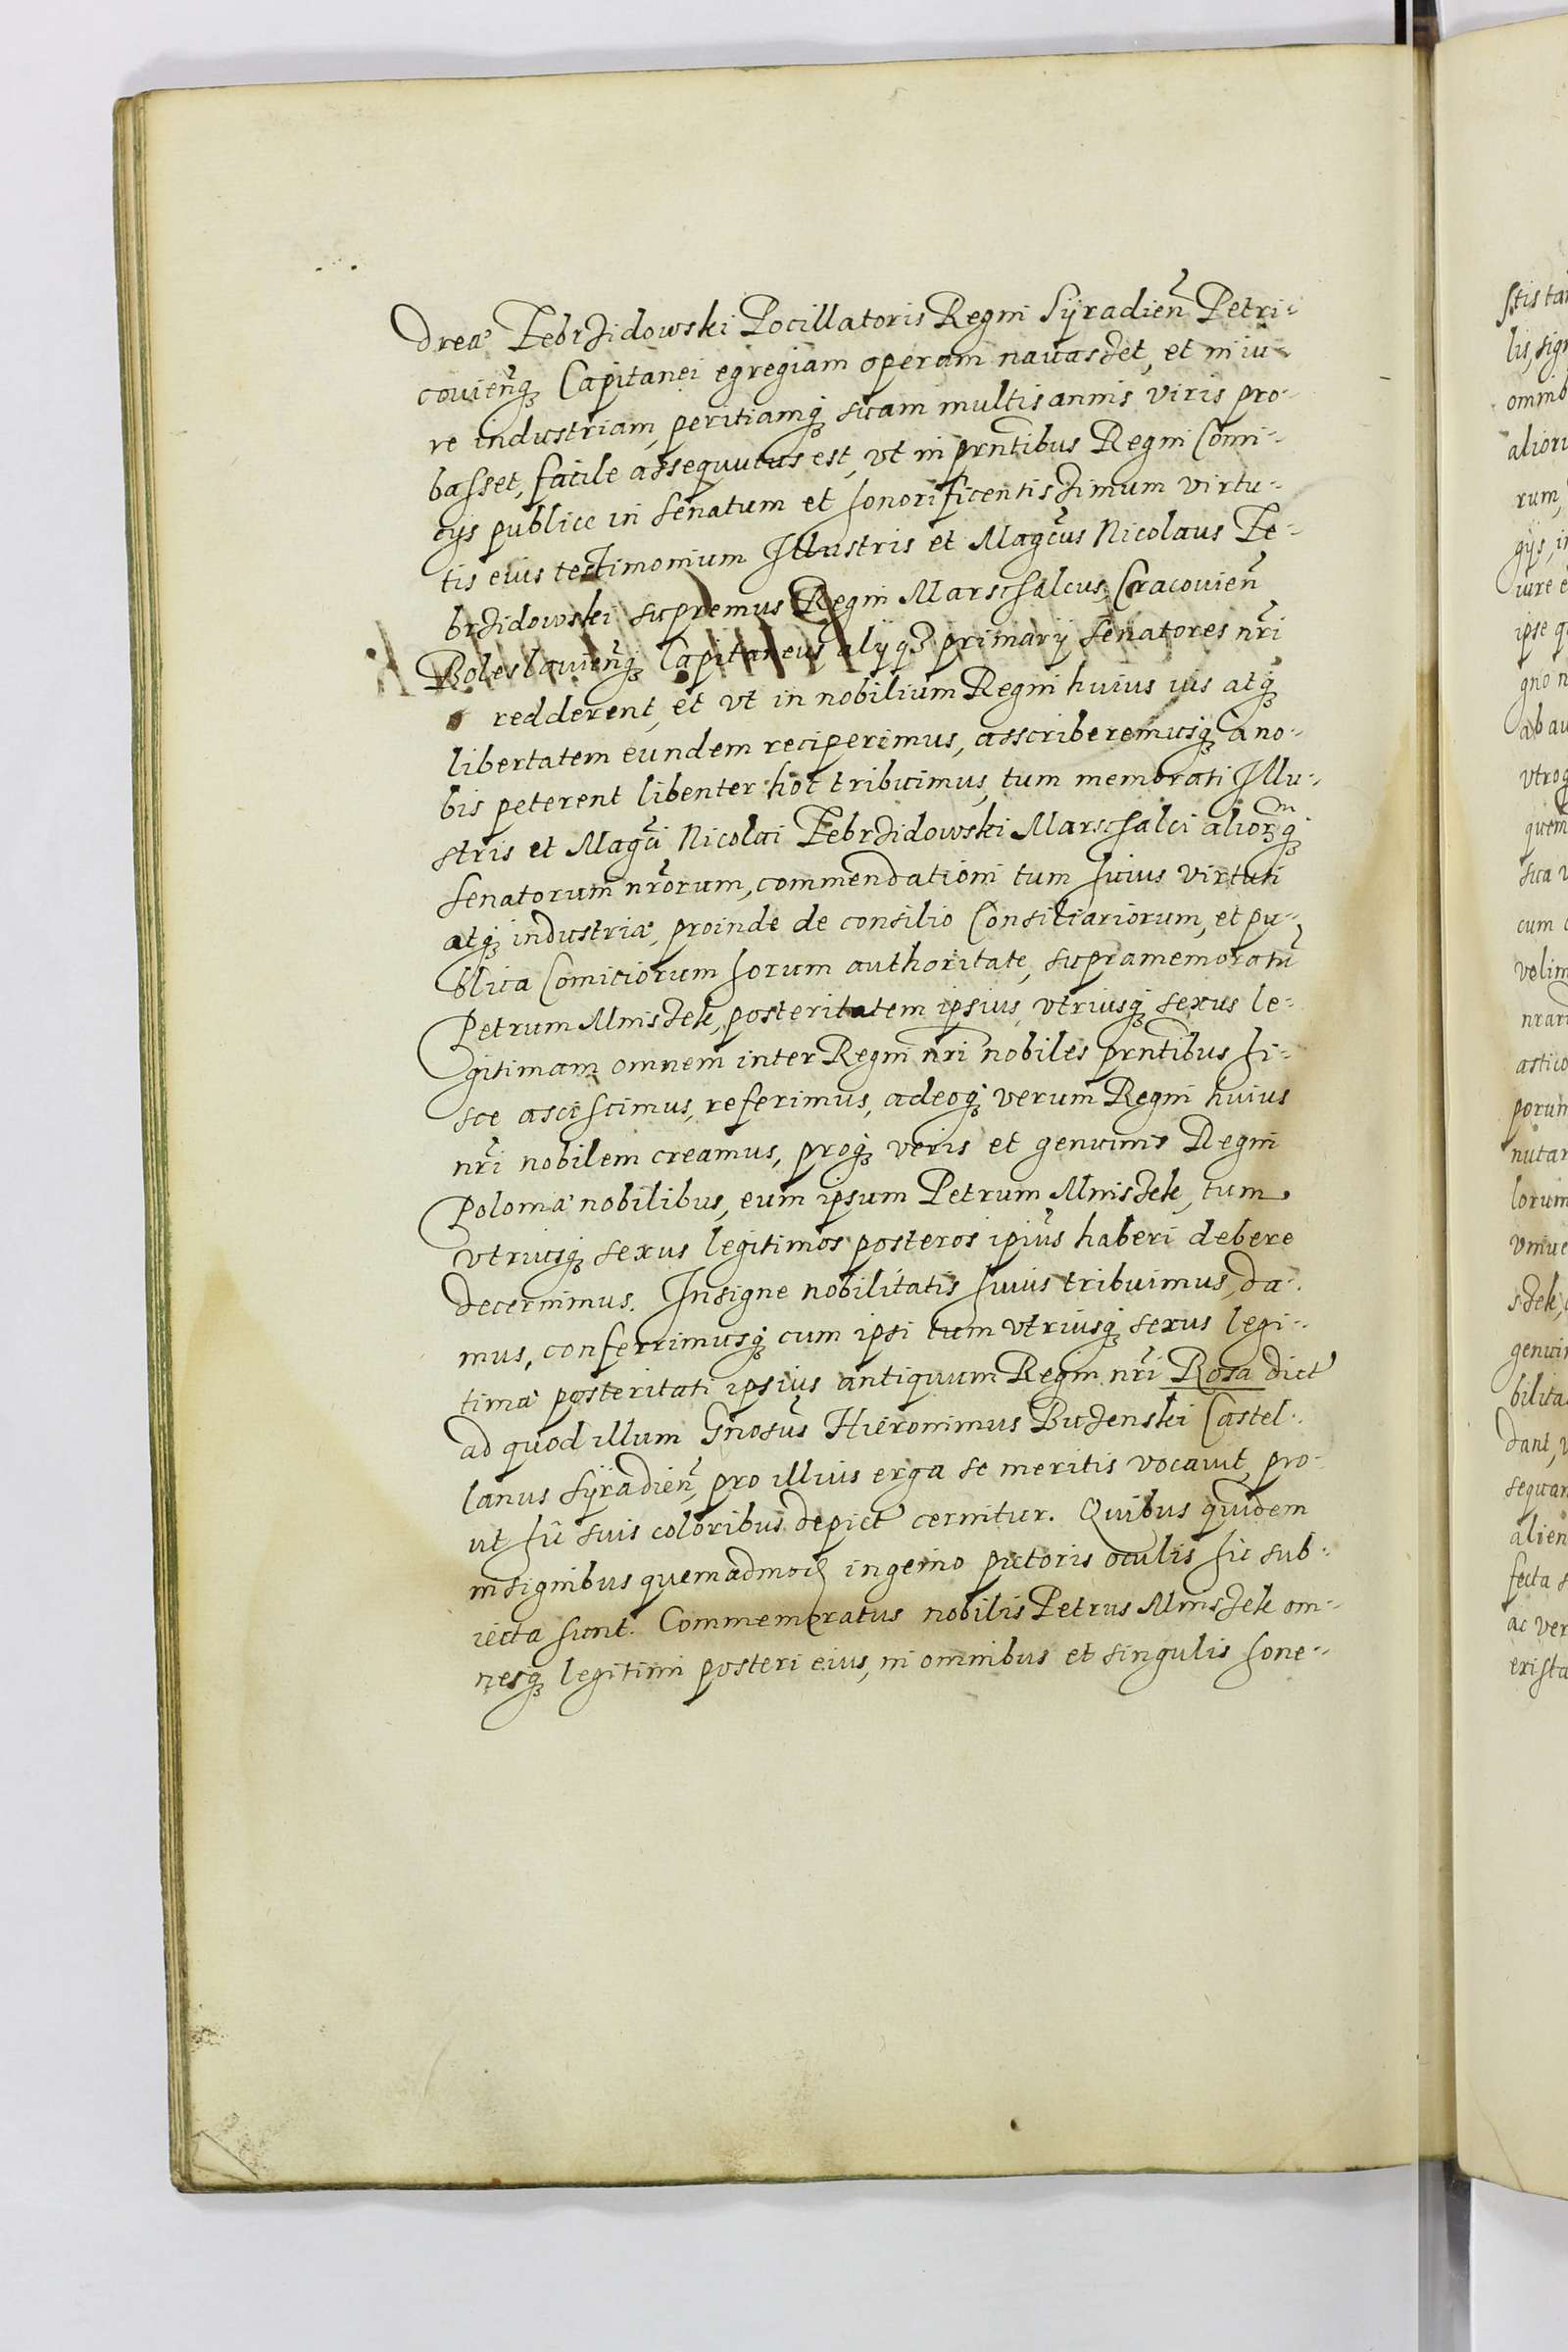 dreæ Zebrzidowski Pocillatoris Regni Syradieñ Petri-
covieñq; Capitanei egregiam operam navasset, et in iu-
re industriam, peritiamq; suam multis annis viris pro-
basset, facile assequutus est, vt in prñtibus Regni Comi-
cijs publice in senatum et honorificentissimum virtu-
tis eius testimonium Illustris et Magcus Nicolaus Ze-
brzidowski supremus Regni Marschalcus, Cracovieñ
Boleslavieñq; Capitaneus, alijq; primarij senatores nri
redderent, et vt in nobilium Regni huius ius atq;
libertatem eundem reciperemus, asscriberemusq; a no-
bis peterent libenter hoc tribuimus, tum memorati Illu-
stris et Magci Nicolai Zebrzidowski Marschalci aliorq;
senatorum nrorum, commendationi tum huius virtuti
atq; industriæ, proinde de consilio Consiliariorum, et pu-
blica Comitiorum horum authoritate, supramemoratũ
Petrum Mniszek, posteritatem ipsius, vtriusq; sexus le-
gitimam omnem inter Regni nri nobiles prñtibus hi-
sce asciscimus, referimus, adeoq; verum Regni huius
nri nobilem creamus, proq; veris et genuinis Regni
Poloniæ nobilibus, eum ipsum Petrum Mniszek, tum
vtriusq; sexus legitimos posteros ipius haberi debere
decernimus. Insigne nobilitatis huius tribuimus, da-
mus, conferrimusq; cum ipsi tum vtriusq; sexus legi-
timæ posteritati ipsius antiquum Regni nri Rosa dict
ad quod illum Gnosus Hieronimus Buzenski Castel-
lanus Syradieñ, pro illius erga se meritis vocavit, pro-
ut hic suis coloribus depict cernitur. Quibus quidem
insignibus quemadmod ingenio pictoris oculis hic sub-
iecta sunt. Commemoratus nobilis Petrus Mniszek om-
nesq; legitimi posteri eius, in omnibus et singulis hone-